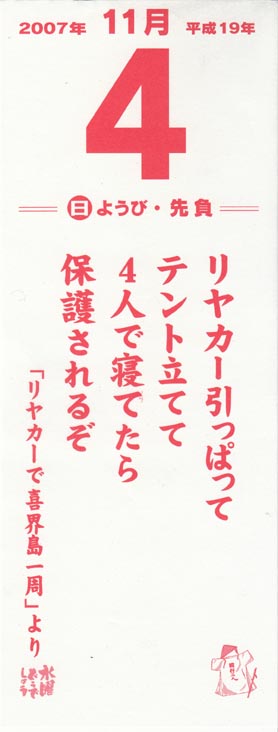 2007年 11月 平成19年
4
日ようび・先負
リヤカー引っぱって
テント立てて
4人で寝てたら
保護されるぞ
「リヤカーで喜界島一周」より
水曜どうでしょう